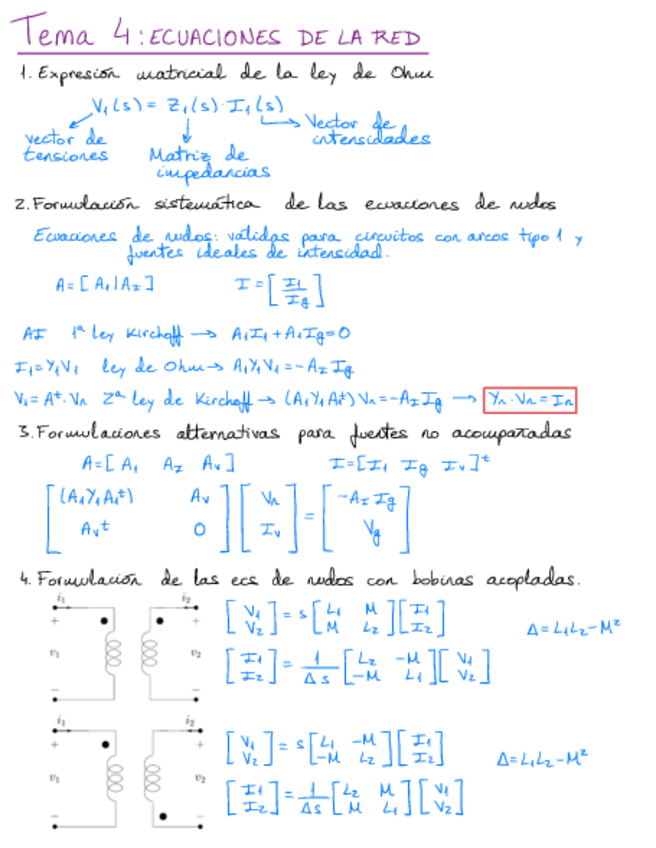 Tema 4: ECUACIONES DE LA RED
1. Expresión matricial de la ley de Ohm
V₁(s) = Z₁(s) · I₁(s)
vector de tensiones
Matriz de impedancias
Vector de intensidades
2. Formulación sistemática de las ecuaciones de nudos
Ecuaciones de nudos: válidas para circuitos con arcos tipo 1 y
fuentes ideales de intensidad.
A = [A₁ | A_I] I = [I₁ / I_g]
AI 1ª ley Kirchoff → A₁I₁ + A₁I_g = 0
I₁ = Y₁V₁ ley de Ohm → A₁Y₁V₁ = -A_I I_g
V₁ = Aᵗ · Vₙ 2ª ley de Kirchoff → (A₁Y₁A₁ᵗ) Vₙ = -A_I I_g → Yₙ · Vₙ = Iₙ
3. Formulaciones alternativas para fuentes no acompañadas
A = [A₁ A_I A_v] I = [I₁ I_g I_v]ᵗ
[(A₁Y₁A₁ᵗ) A_v ; A_vᵗ 0] [Vₙ ; I_v] = [-A_I I_g ; V_g]
4. Formulación de las ecs de nudos con bobinas acopladas.
i₁ i₂
+ +
v₁ v₂
− −
[V₁ ; V₂] = s [L₁ M ; M L₂] [I₁ ; I₂] Δ = L₁L₂ - M²
[I₁ ; I₂] = 1/Δs [L₂ -M ; -M L₁] [V₁ ; V₂]
i₁ i₂
+ +
v₁ v₂
− −
[V₁ ; V₂] = s [L₁ -M ; -M L₂] [I₁ ; I₂] Δ = L₁L₂ - M²
[I₁ ; I₂] = 1/Δs [L₂ M ; M L₁] [V₁ ; V₂]